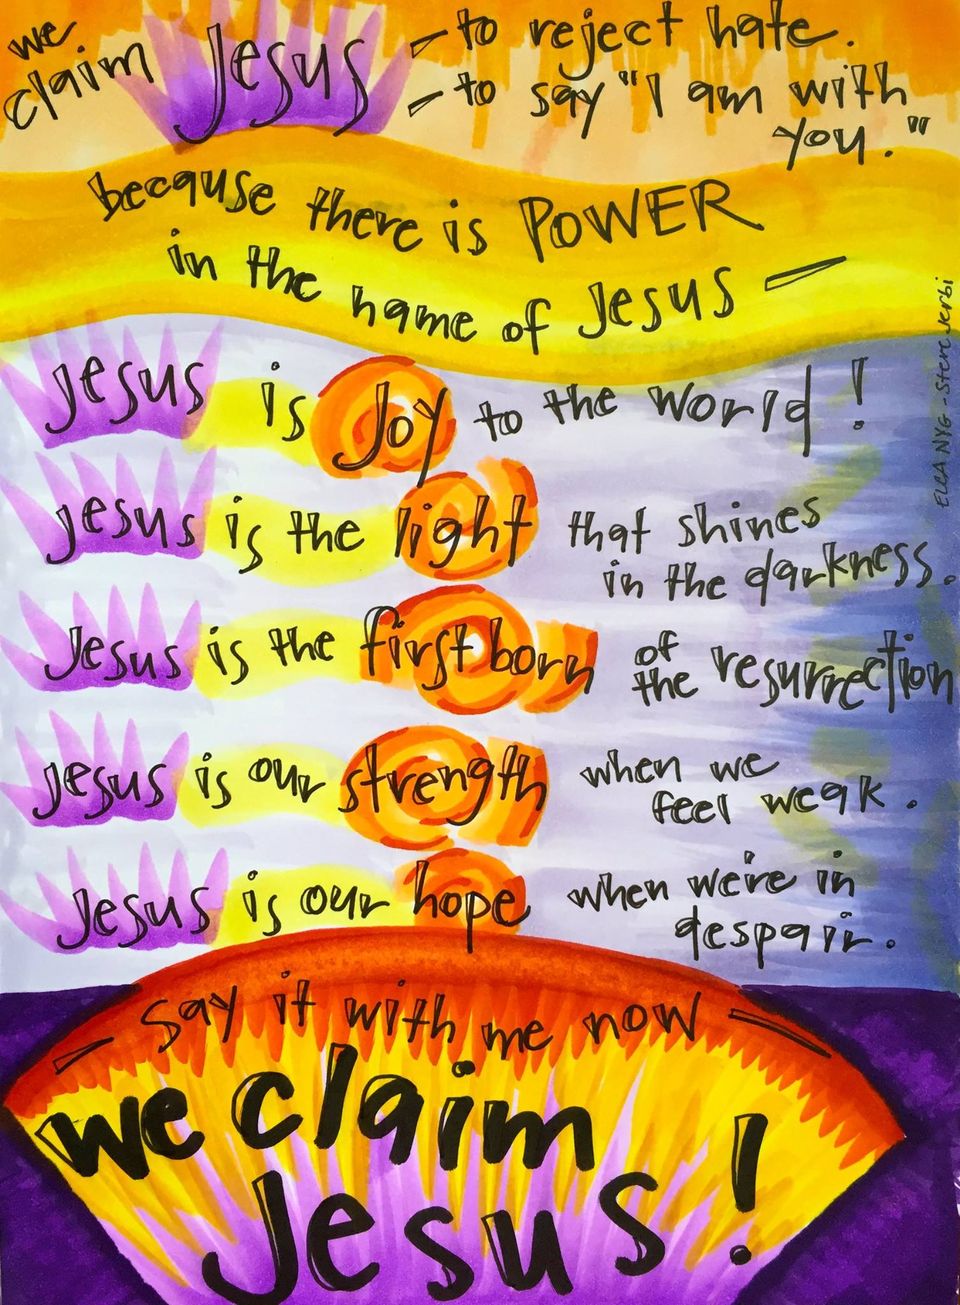 we
claim Jesus - to reject hate.
- to say "I am with
you."
because there is POWER
in the name of Jesus —
Jesus is Joy to the world!
Jesus is the light that shines
in the darkness.
Jesus is the first born of the resurrection
Jesus is our strength when we
feel weak.
Jesus is our hope when we're in
despair.
— say it with me now —
we claim
Jesus!
ELCA NYG - Steve Jerbi